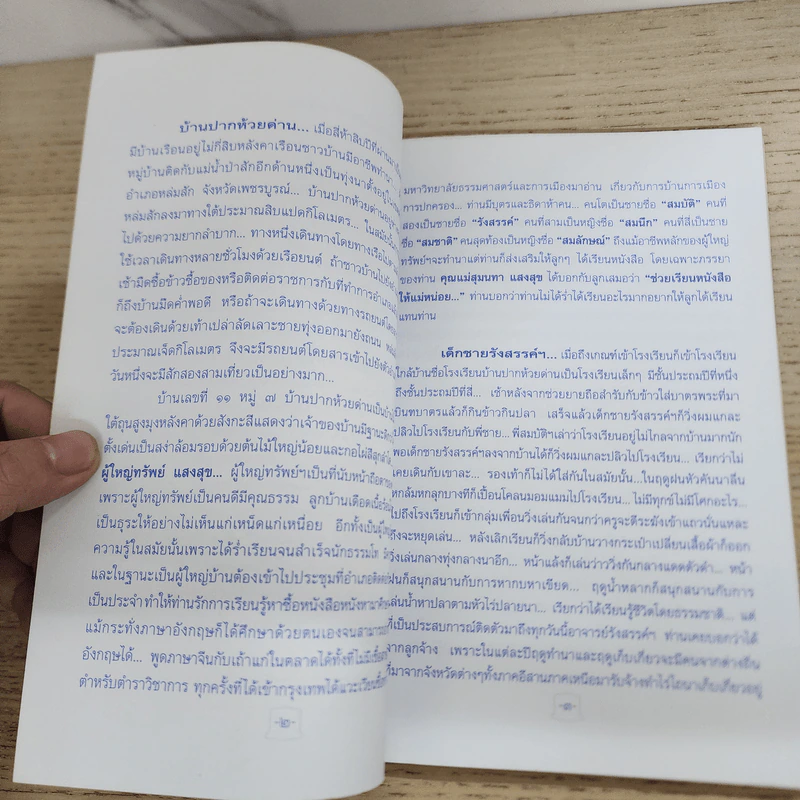 บ้านปากห้วยด่าน... เมื่อสี่ห้าสิบปีที่ผ่านมา
มีบ้านเรือนอยู่ไม่กี่สิบหลังคาเรือนชาวบ้านมีอาชีพทำนา
หมู่บ้านติดกับแม่น้ำป่าสักอีกด้านหนึ่งเป็นทุ่งนาตั้งอยู่ใน
อำเภอหล่มสัก จังหวัดเพชรบูรณ์... บ้านปากห้วยด่าน
หล่มสักลงมาทางใต้ประมาณสิบแปดกิโลเมตร... ในสมัยนั้น
ไปด้วยความยากลำบาก... ทางหนึ่งเดินทางโดยทางเรือ
ใช้เวลาเดินทางหลายชั่วโมงด้วยเรือยนต์ ถ้าชาวบ้าน
เช้ามืดซื้อข้าวซื้อของหรือติดต่อราชการกับที่ทำการอำเภอ
ก็ถึงบ้านมืดค่ำพอดี หรือถ้าจะเดินทางด้วยทางรถยนต์
จะต้องเดินด้วยเท้าเปล่าลัดเลาะชายทุ่งออกมายังถนน
ประมาณเจ็ดกิโลเมตร จึงจะมีรถยนต์โดยสารเข้าไปยัง
วันหนึ่งจะมีสักสองสามเที่ยวเป็นอย่างมาก...
บ้านเลขที่ ๑๑ หมู่ ๗ บ้านปากห้วยด่านเป็น
ใต้ถุนสูงมุงหลังคาด้วยสังกะสีแสดงว่าเจ้าของบ้านมีฐานะ
ตั้งเด่นเป็นสง่าล้อมรอบด้วยต้นไม้ใหญ่น้อยและกอไผ่สีสุก
ผู้ใหญ่ทรัพย์ แสงสุข... ผู้ใหญ่ทรัพย์ฯเป็นที่นับหน้าถือตา
เพราะผู้ใหญ่ทรัพย์เป็นคนดีมีคุณธรรม ลูกบ้านเดือดเนื้อ
เป็นธุระให้อย่างไม่เห็นแก่เหน็ดแก่เหนื่อย อีกทั้งเป็นผู้
ความรู้ในสมัยนั้นเพราะได้ร่ำเรียนจนสำเร็จนักธรรม
และในฐานะเป็นผู้ใหญ่บ้านต้องเข้าไปประชุมที่อำเภอ
เป็นประจำทำให้ท่านรักการเรียนรู้หาซื้อหนังสือหนังหา
แม้กระทั่งภาษาอังกฤษก็ได้ศึกษาด้วยตนเองจน
อังกฤษได้... พูดภาษาจีนกับเถ้าแก่ในตลาดได้ทั้งที่ไม่
ตำหรับตำราวิชาการ ทุกครั้งที่ได้เข้ากรุงเทพได้แวะเวียน
-๒-
มหาวิทยาลัยธรรมศาสตร์และการเมืองมาอ่าน เกี่ยวกับการบ้านการเมือง
การปกครอง... ท่านมีบุตรและธิดาห้าคน... คนโตเป็นชายชื่อ "สมบัติ" คนที่
สองเป็นชายชื่อ "รังสรรค์" คนที่สามเป็นหญิงชื่อ "สมนึก" คนที่สี่เป็นชาย
ชื่อ "สมชาติ" คนสุดท้องเป็นหญิงชื่อ "สมลักษณ์" ถึงแม้อาชีพหลักของผู้ใหญ่
ทรัพย์จะทำนาแต่ท่านก็ส่งเสริมให้ลูกๆ ได้เรียนหนังสือ โดยเฉพาะภรรยา
ของท่าน คุณแม่สุมนทา แสงสุข ได้บอกกับลูกเสมอว่า "ช่วยเรียนหนังสือ
ให้แม่หน่อย..." ท่านบอกว่าท่านไม่ได้ร่ำได้เรียนอะไรมากอยากให้ลูกได้เรียน
แทนท่าน
เด็กชายรังสรรค์ฯ... เมื่อถึงเกณฑ์เข้าโรงเรียนก็เข้าโรงเรียน
ใกล้บ้านชื่อโรงเรียนบ้านปากห้วยด่านเป็นโรงเรียนเล็กๆ มีชั้นประถมปีที่หนึ่ง
ถึงชั้นประถมปีที่สี่... เช้าหลังจากช่วยยายถือสำรับกับข้าวใส่บาตรพระที่มา
บิณฑบาตรแล้วก็กินข้าวกินปลา เสร็จแล้วเด็กชายรังสรรค์ฯก็วิ่งผมแกละ
ปลิวไปโรงเรียนกับพี่ชาย... พี่สมบัติฯเล่าว่าโรงเรียนอยู่ไม่ไกลจากบ้านมากนัก
พอเด็กชายรังสรรค์ฯลงจากบ้านได้ก็วิ่งผมแกละปลิวไปโรงเรียน... เรียกว่าไม่
เคยเดินกับเขาละ... รองเท้าก็ไม่ได้ใส่กันในสมัยนั้น... ในฤดูฝนหัวคันนาลื่น
หกล้มหกลุกบางทีก็เปื้อนโคลนมอมแมมไปโรงเรียน... ไม่มีทุกข์ไม่มีโศกอะไร...
ไปถึงโรงเรียนก็เข้ากลุ่มเพื่อนวิ่งเล่นกันจนกว่าครูจะตีระฆังเข้าแถวนั่นแหละ
ถึงจะหยุดเล่น... หลังเลิกเรียนก็วิ่งกลับบ้านวางกระเป๋าเปลี่ยนเสื้อผ้าก็ออก
วิ่งเล่นกลางทุ่งกลางนาอีก... หน้าแล้งก็เล่นว่าววิ่งกันกลางแดดตัวดำ... หน้า
ฝนก็สนุกสนานกับการหากบหาเขียด... ฤดูน้ำหลากก็สนุกสนานกับการ
เล่นน้ำหาปลาตามหัวไร่ปลายนา... เรียกว่าได้เรียนรู้ชีวิตโดยธรรมชาติ... แต่
ที่เป็นประสบการณ์ติดตัวมาถึงทุกวันนี้อาจารย์รังสรรค์ฯ ท่านเคยบอกว่าได้
จากลูกจ้าง เพราะในแต่ละปีฤดูทำนาและฤดูเก็บเกี่ยวจะมีคนจากต่างถิ่น
ที่มาจากจังหวัดต่างๆทั้งภาคอีสานภาคเหนือมารับจ้างทำไร่ไถนาเก็บเกี่ยวอยู่
-๓-